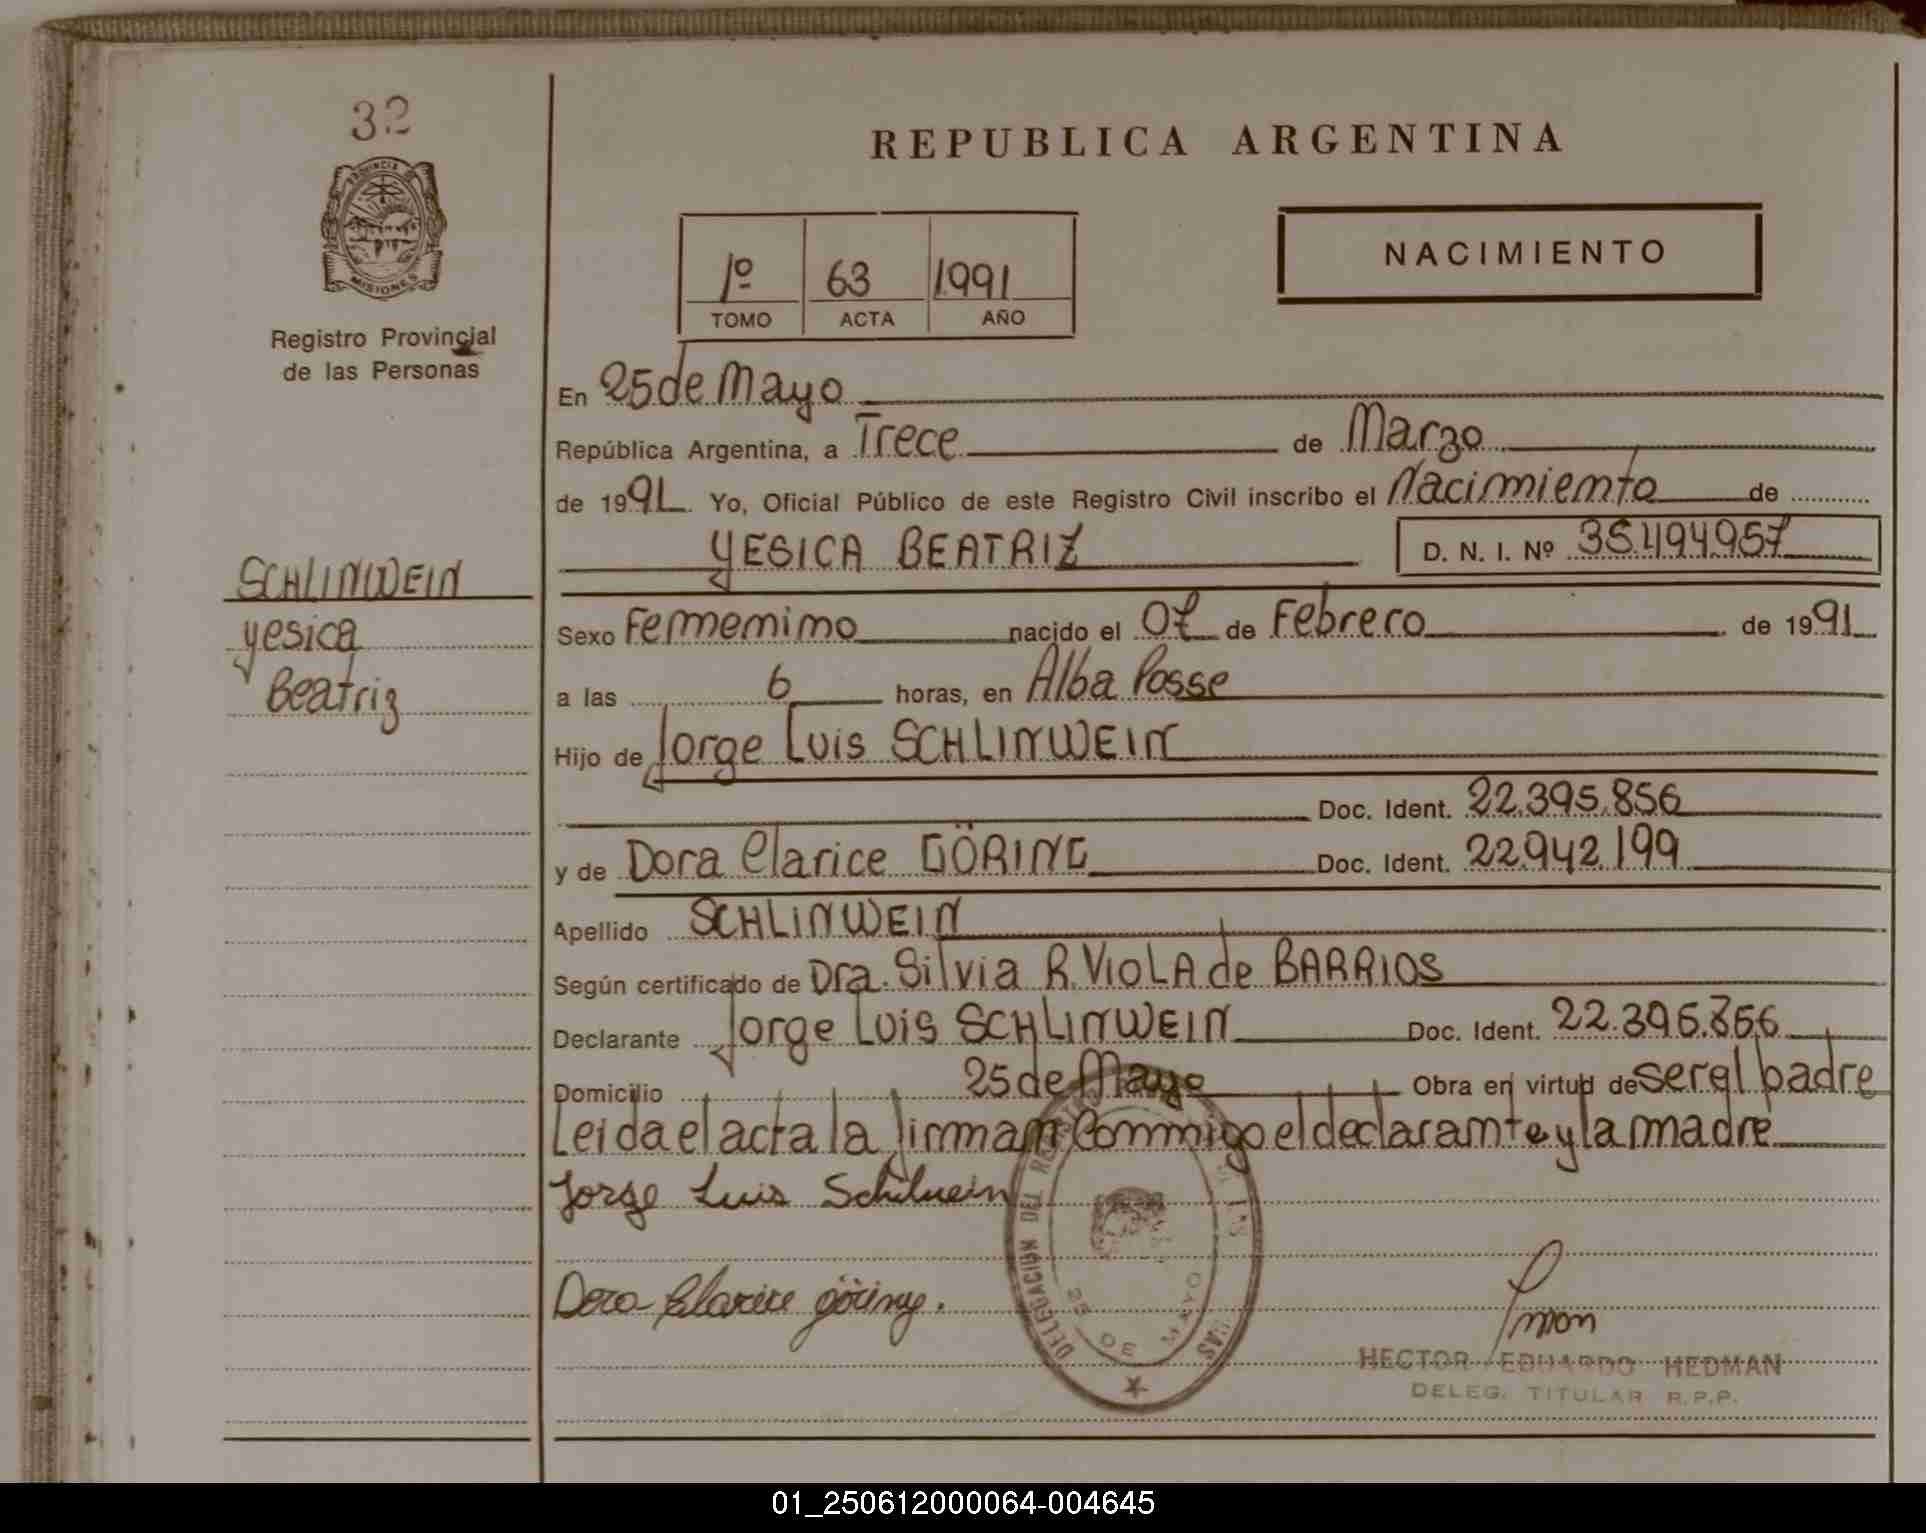 32
PROVINCIA D
MISIONES
Registro Provincial
de las Personas
SCHLINWEIN
Yesica
Beatriz
REPUBLICA ARGENTINA
1º 63 1991
TOMO ACTA AÑO
NACIMIENTO
En 25 de Mayo
República Argentina, a Trece de Marzo
de 1991. Yo, Oficial Público de este Registro Civil inscribo el Nacimiento de
YESICA BEATRIZ D. N. I. Nº 35.494.957
Sexo Femenino nacido el 07 de Febrero de 1991
a las 6 horas, en Alba Posse
Hijo de Jorge Luis SCHLINWEIN
Doc. Ident. 22.395.856
y de Dora Clarice GÖRING Doc. Ident. 22.942.199
Apellido SCHLINWEIN
Según certificado de Dra. Silvia R. VIOLA de BARRIOS
Declarante Jorge Luis SCHLINWEIN Doc. Ident. 22.395.856
Domicilio 25 de Mayo Obra en virtud de ser el padre
Leida el acta la firman Conmigo el declarante y la madre
Jorge Luis Schlinwein
Dora Clarice göring.
DELEGACION DEL REGISTRO
25 DE MAYO
HECTOR EDUARDO HEDMAN
DELEG. TITULAR R.P.P.
01_250612000064-004645